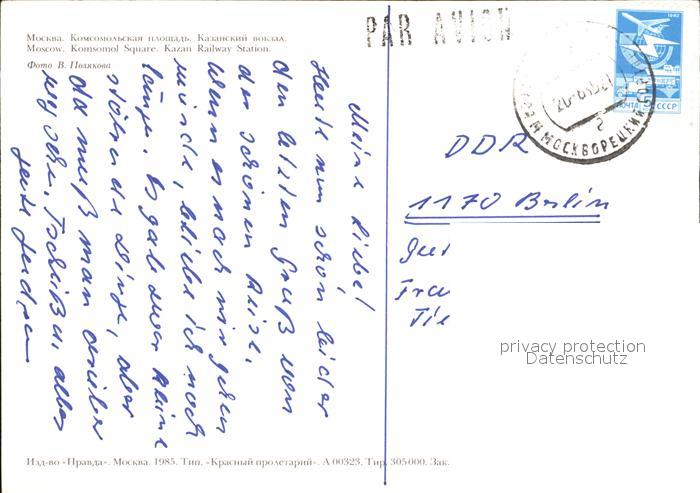 Москва. Комсомольская площадь. Казанский вокзал.
Moscow. Komsomol Square. Kazan Railway Station.
Фото В. Полякова
PAR AVION
ПОЧТА СССР
МОСКВОРЕЦКИЙ
Meine Liebe!
Heute nun schon leider
den letzten Gruß von
der schönen Reise.
Wenn es nach mir gehen
würde, bliebe ich noch
länger. Es gab zwar kleine
störende Dinge, aber
da muß man drüber
weg sehen. Tschüßu. alles
gute Judsen
DDR
1170 Berlin
privacy protection
Datenschutz
Изд-во «Правда». Москва. 1985. Тип. «Красный пролетарий». А 00323. Тир. 305000. Зак.